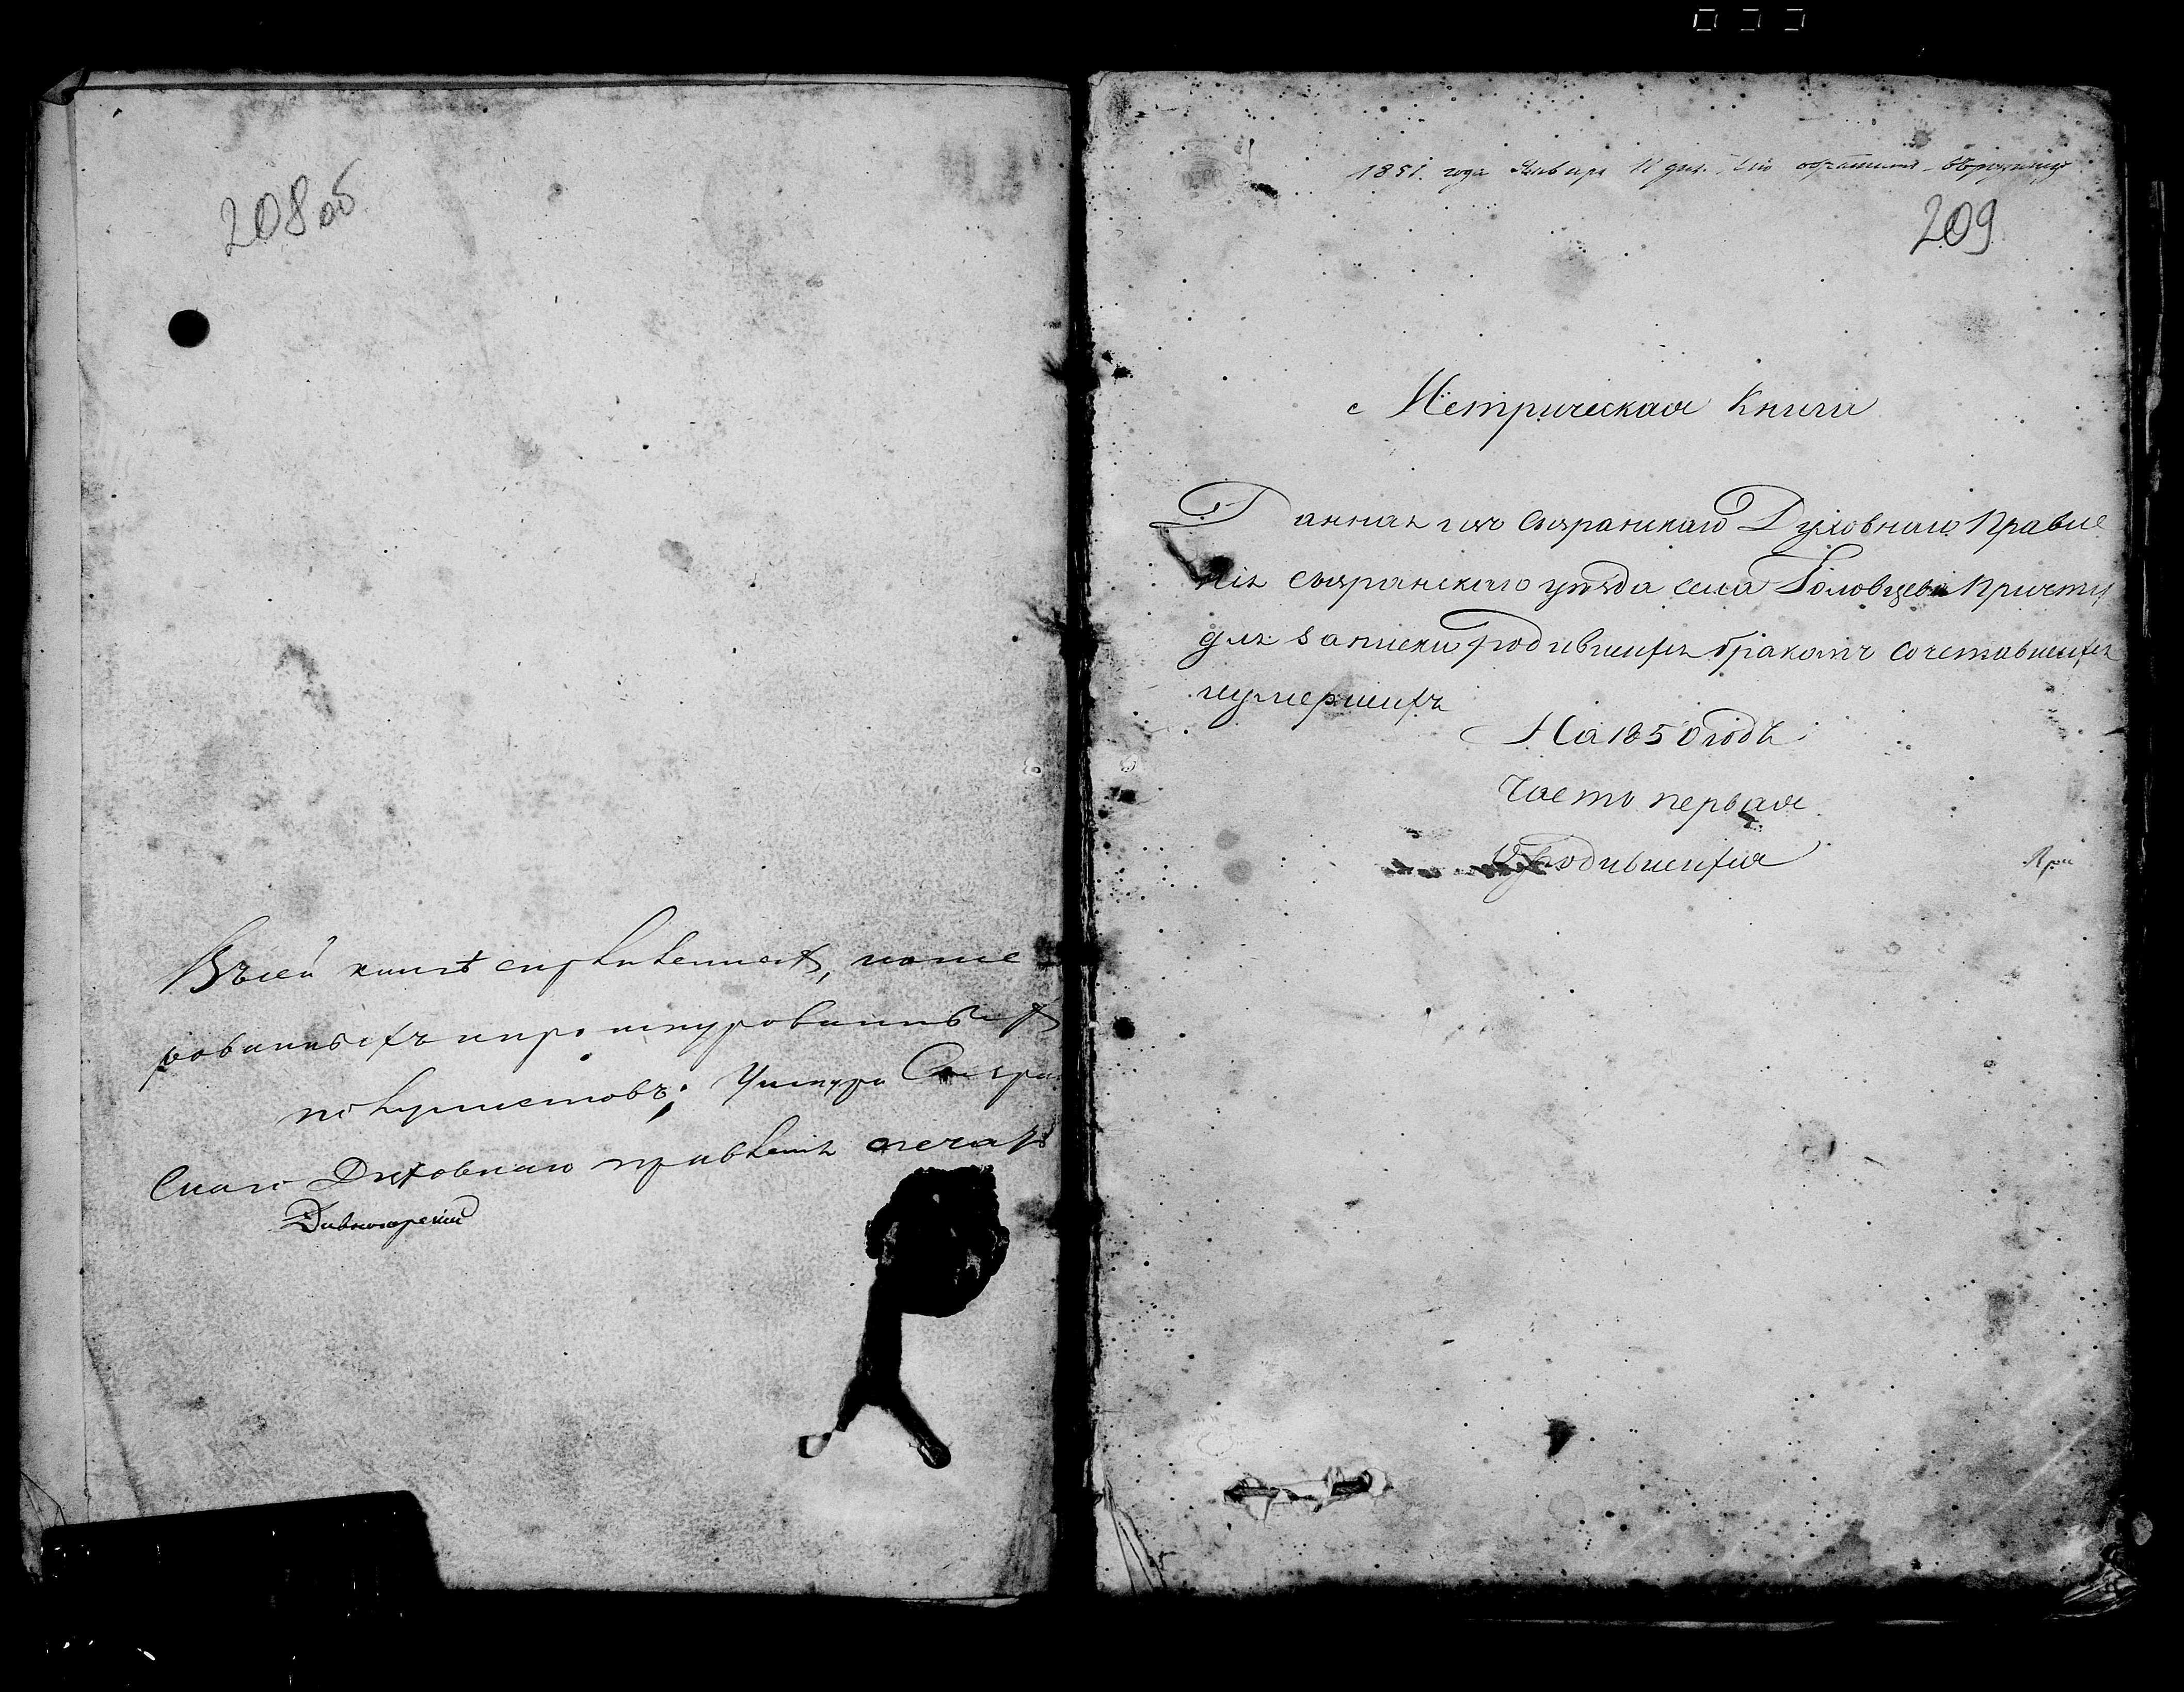 208 об
Въ сей книгѣ скрѣпленныхъ, номе
рованныхъ и прошнурованныхъ
листовъ; У шнура Сызран
скаго Духовнаго правленія печать
Дивногорскій
1851 года Января 11 дня.
209
Метрическая Книга
Данная изъ Сызранскаго Духовнаго Правле
нія Сызранскаго уѣзда села Головцева Причту
для записки родившихся бракомъ сочетавшихся
и умершихъ
На 1850 годъ
Часть первая
О родившихся
При